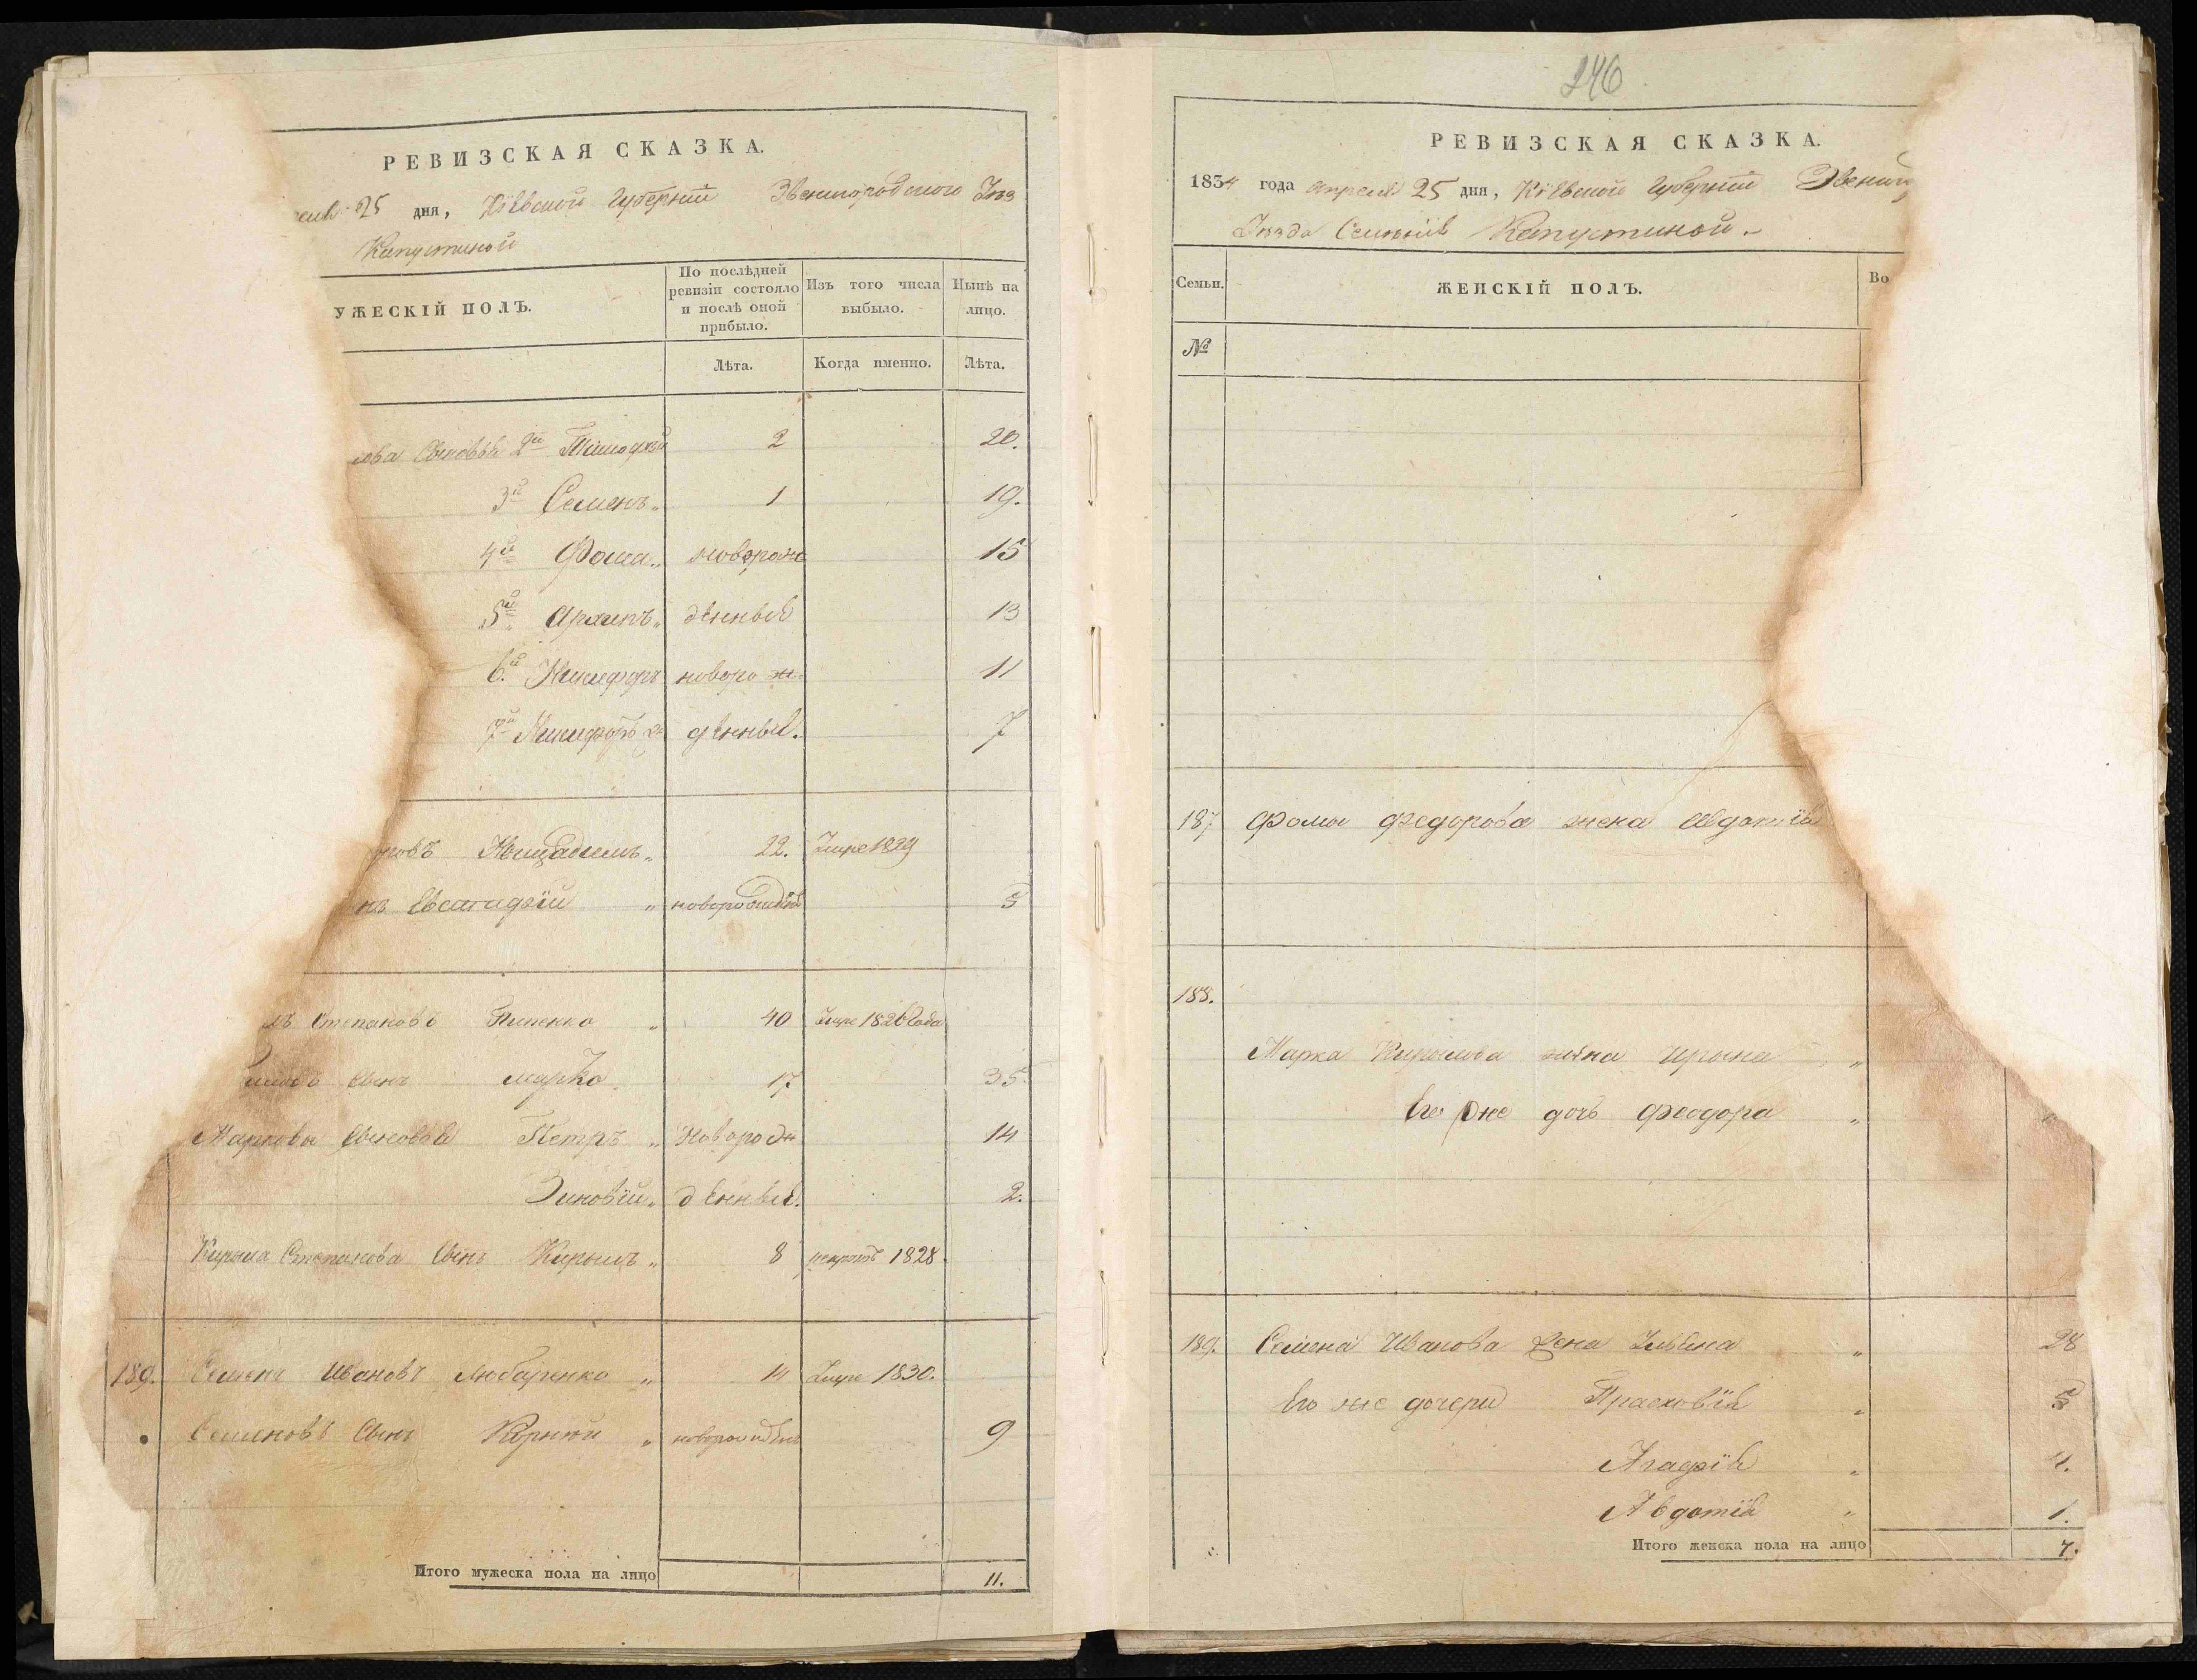 РЕВИЗСКАЯ СКАЗКА.
25 дня, Кіевской Губерніи Звенигородского Уѣз
Капустиной
УЖЕСКІЙ ПОЛЪ.
По послѣдней ревизіи состояло и послѣ оной прибыло.
Изъ того числа выбыло.
Нынѣ на лицо.
Лѣта.
Когда именно.
Лѣта.
лова Сыновья 2й Тимофей 2 20.
3й Семенъ 1 19.
4й Фома новорож 15
5й Архипъ денныя 13
6й Никифоръ новорож 11
7й Никифоръ 2й денныя. 7
22. Умре 1829
нъ Евстафій новорожден 5
лъ Степановъ Пипенко 40 Умре 1826 Года
Сынъ Марко 17 35.
Марковы Сыновья Петръ Новорож 14
Зиновій денныя. 2.
Кирыла Степанова Сынъ Кирылъ 8 рекрутъ 1828.
189. Семенъ Ивановъ Любаренко 14 Умре 1830.
Семеновъ Сынъ Корній новорожденъ 9
Итого мужеска пола на лицо 11.
246
РЕВИЗСКАЯ СКАЗКА.
1834 года апреля 25 дня, Кіевской Губерніи Звениг
Уѣзда Селенія Капустиной.
Семьи.
ЖЕНСКІЙ ПОЛЪ.
Во
№
187 Фомы Федорова жена Евдокія
188.
Марка Кирылова жена Ирына
Его же дочь Феодора
189. Семена Иванова жена Ульяна 28
Его же дочери Прасковія 5
Агафія 4.
Авдотія 1.
Итого женска пола на лицо 7.